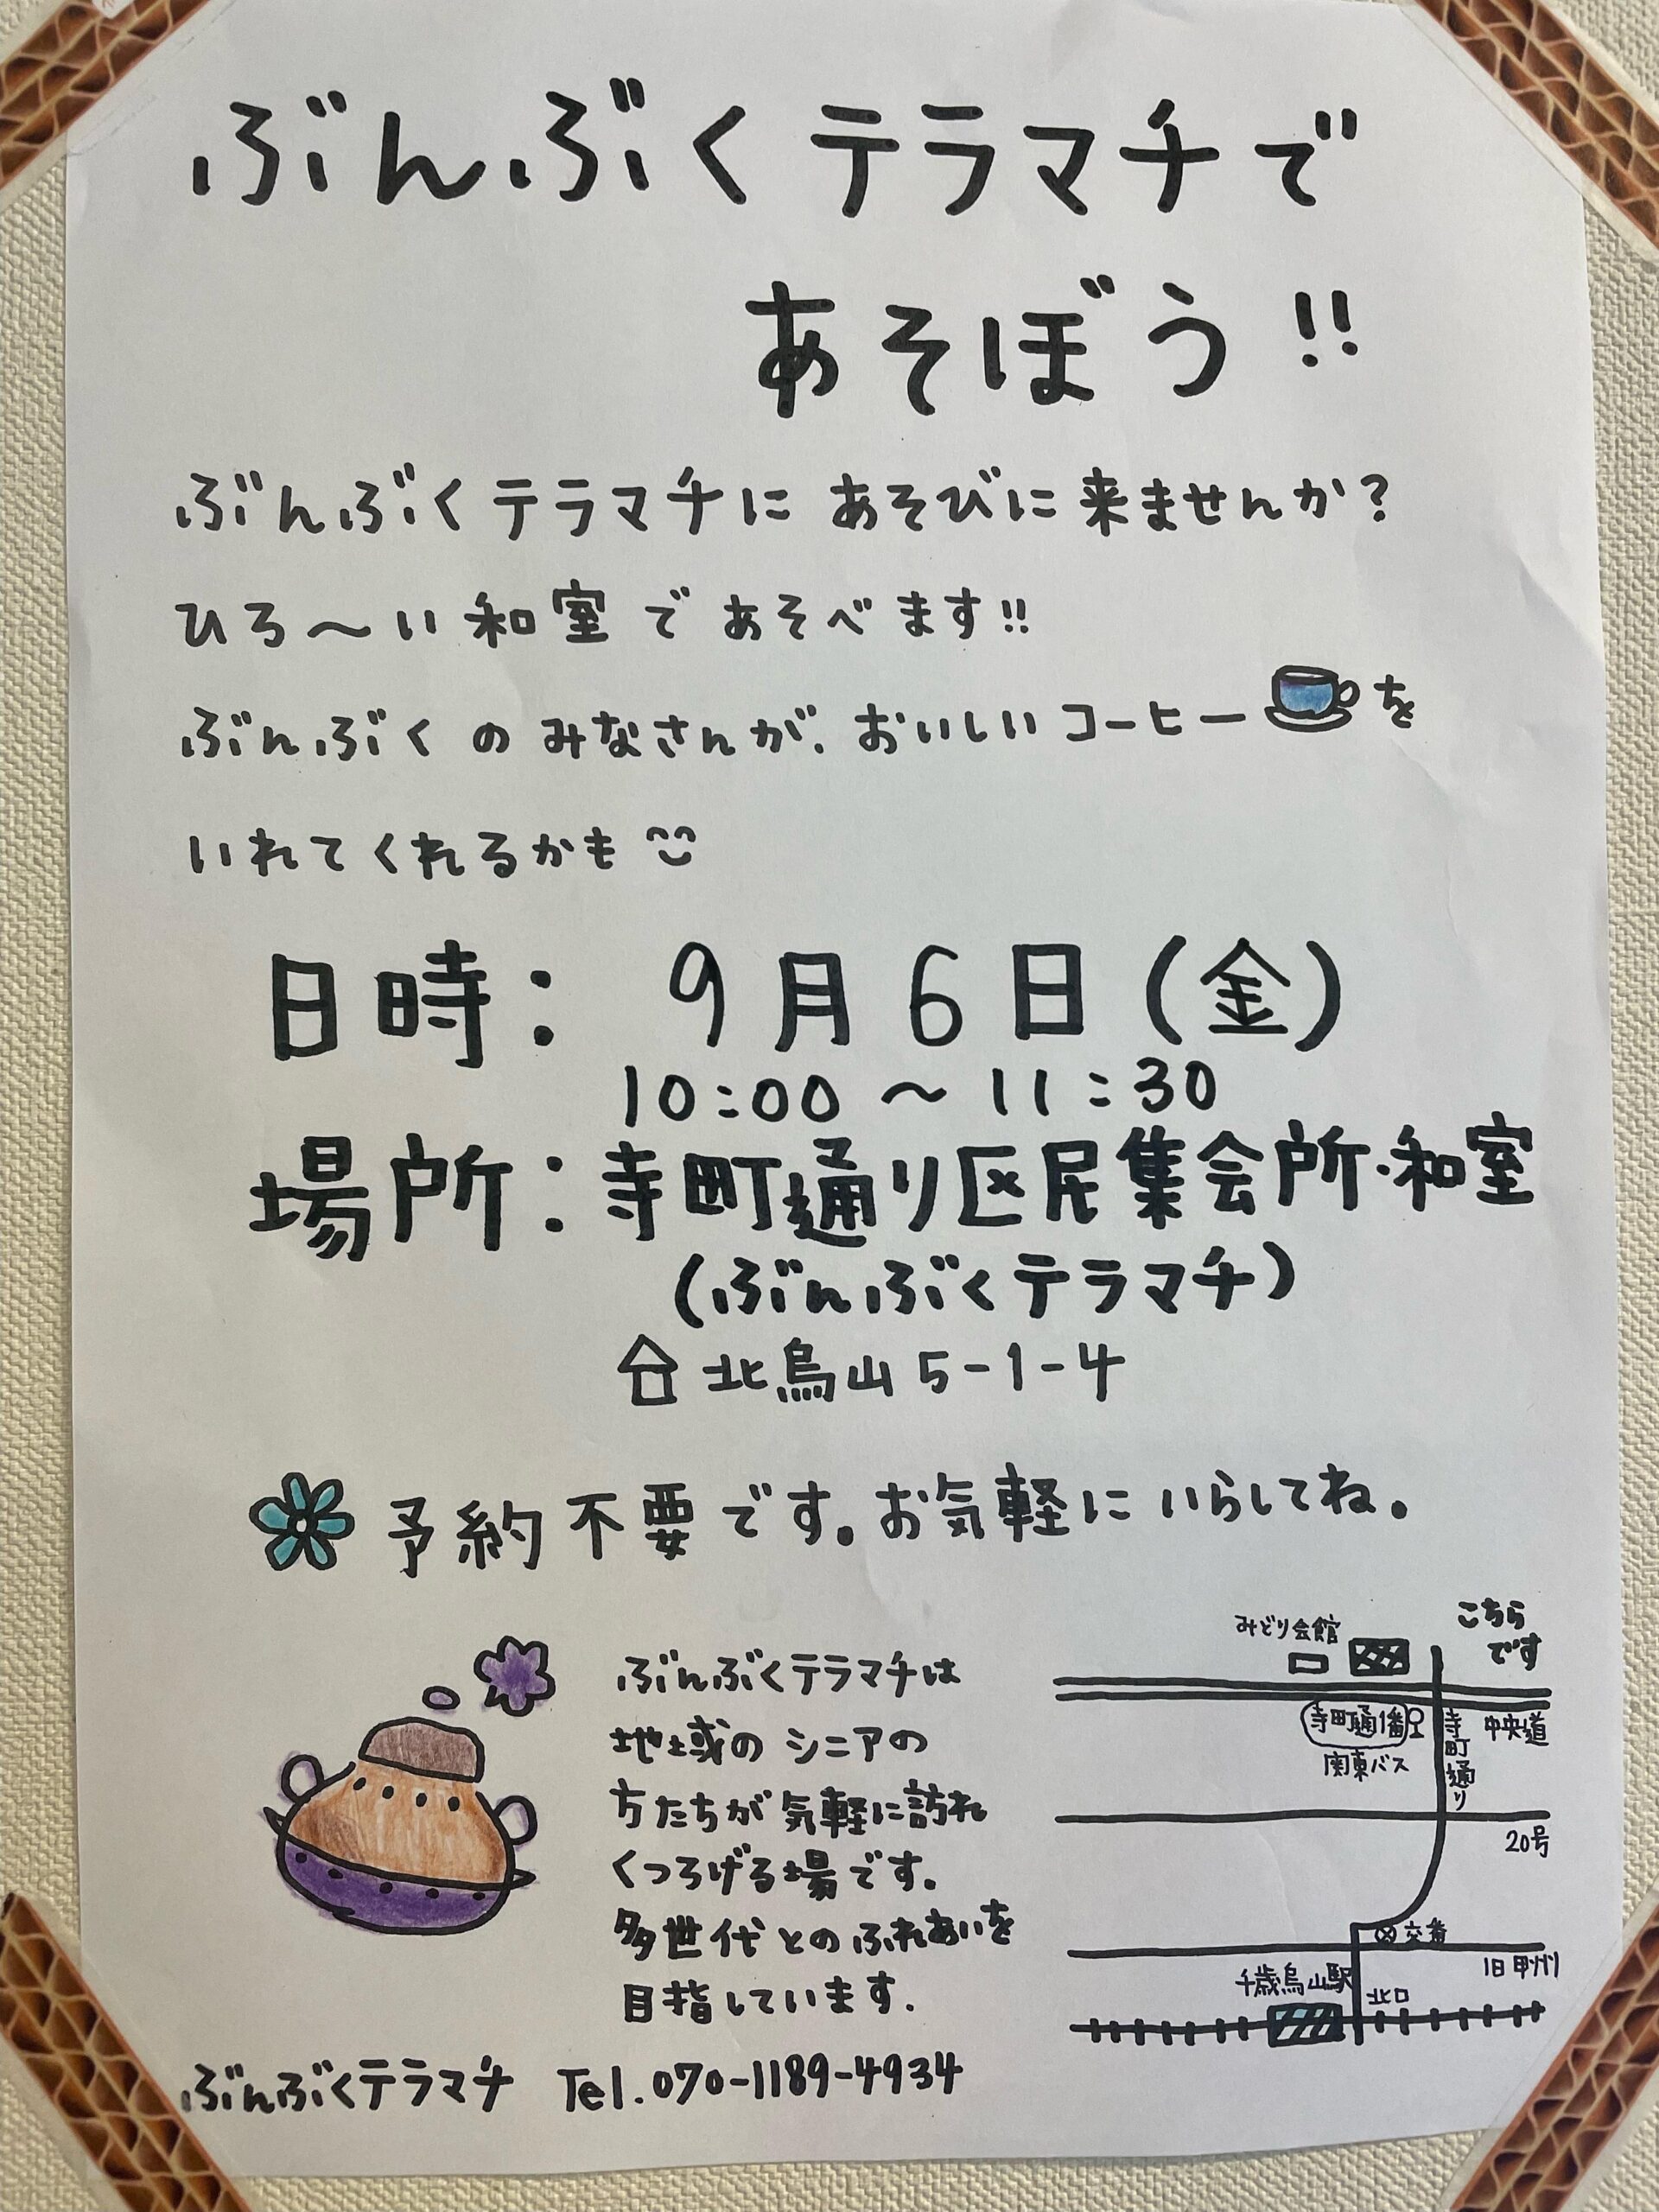 ぶんぶくテラマチで
あそぼう!!
ぶんぶくテラマチに あそびに来ませんか?
ひろ〜い和室であそべます!!
ぶんぶくのみなさんが、おいしいコーヒーを
いれてくれるかも
日時: 9月6日(金)
10:00〜11:30
場所:寺町通り区民集会所・和室
(ぶんぶくテラマチ)
北烏山5-1-4
予約不要です。お気軽にいらしてね。
ぶんぶくテラマチは
地域のシニアの
方たちが気軽に訪れ
くつろげる場です。
多世代とのふれあいを
目指しています.
ぶんぶくテラマチ Tel.070-1189-4934
こちら
です
みどり会館
寺町通1番
関東バス
寺町通り
中央道
20号
交番
旧甲州
千歳烏山駅
北口